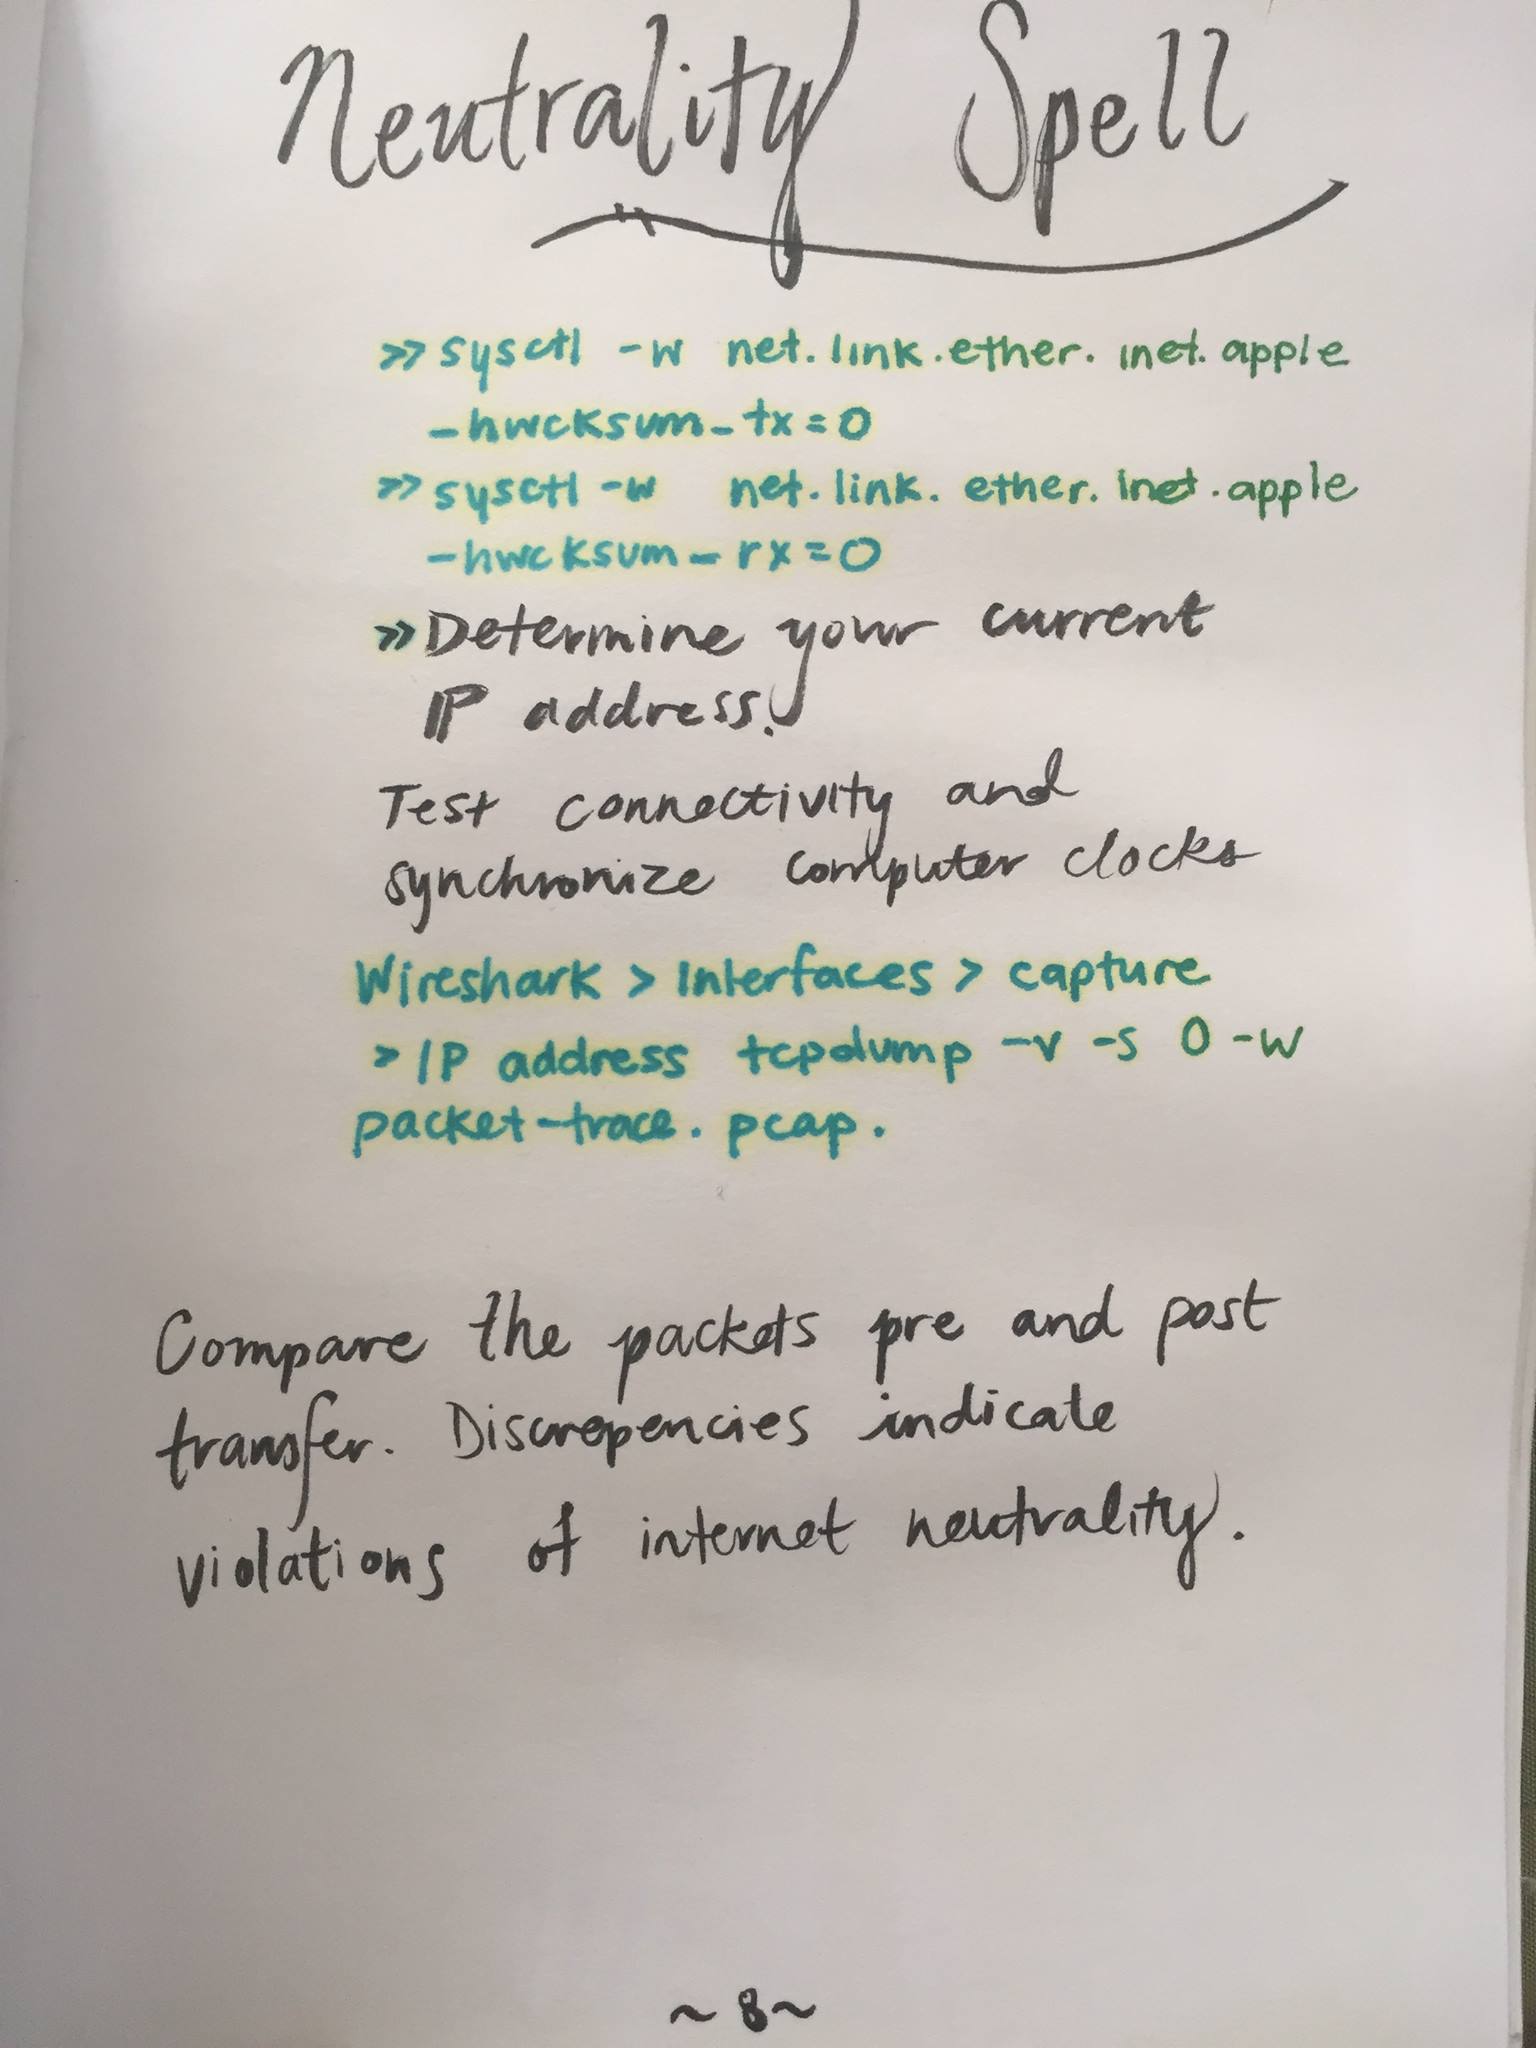 Neutrality Spell
>> sysctl -w net.link.ether.inet.apple
-hwcksum_tx=0
>> sysctl -w net.link.ether.inet.apple
-hwcksum_rx=0
>> Determine your current
IP address.
Test connectivity and
synchronize computer clocks
Wireshark > Interfaces > capture
> IP address tcpdump -v -s 0 -w
packet-trace.pcap.
Compare the packets pre and post
transfer. Discrepencies indicate
violations of internet neutrality.
~8~